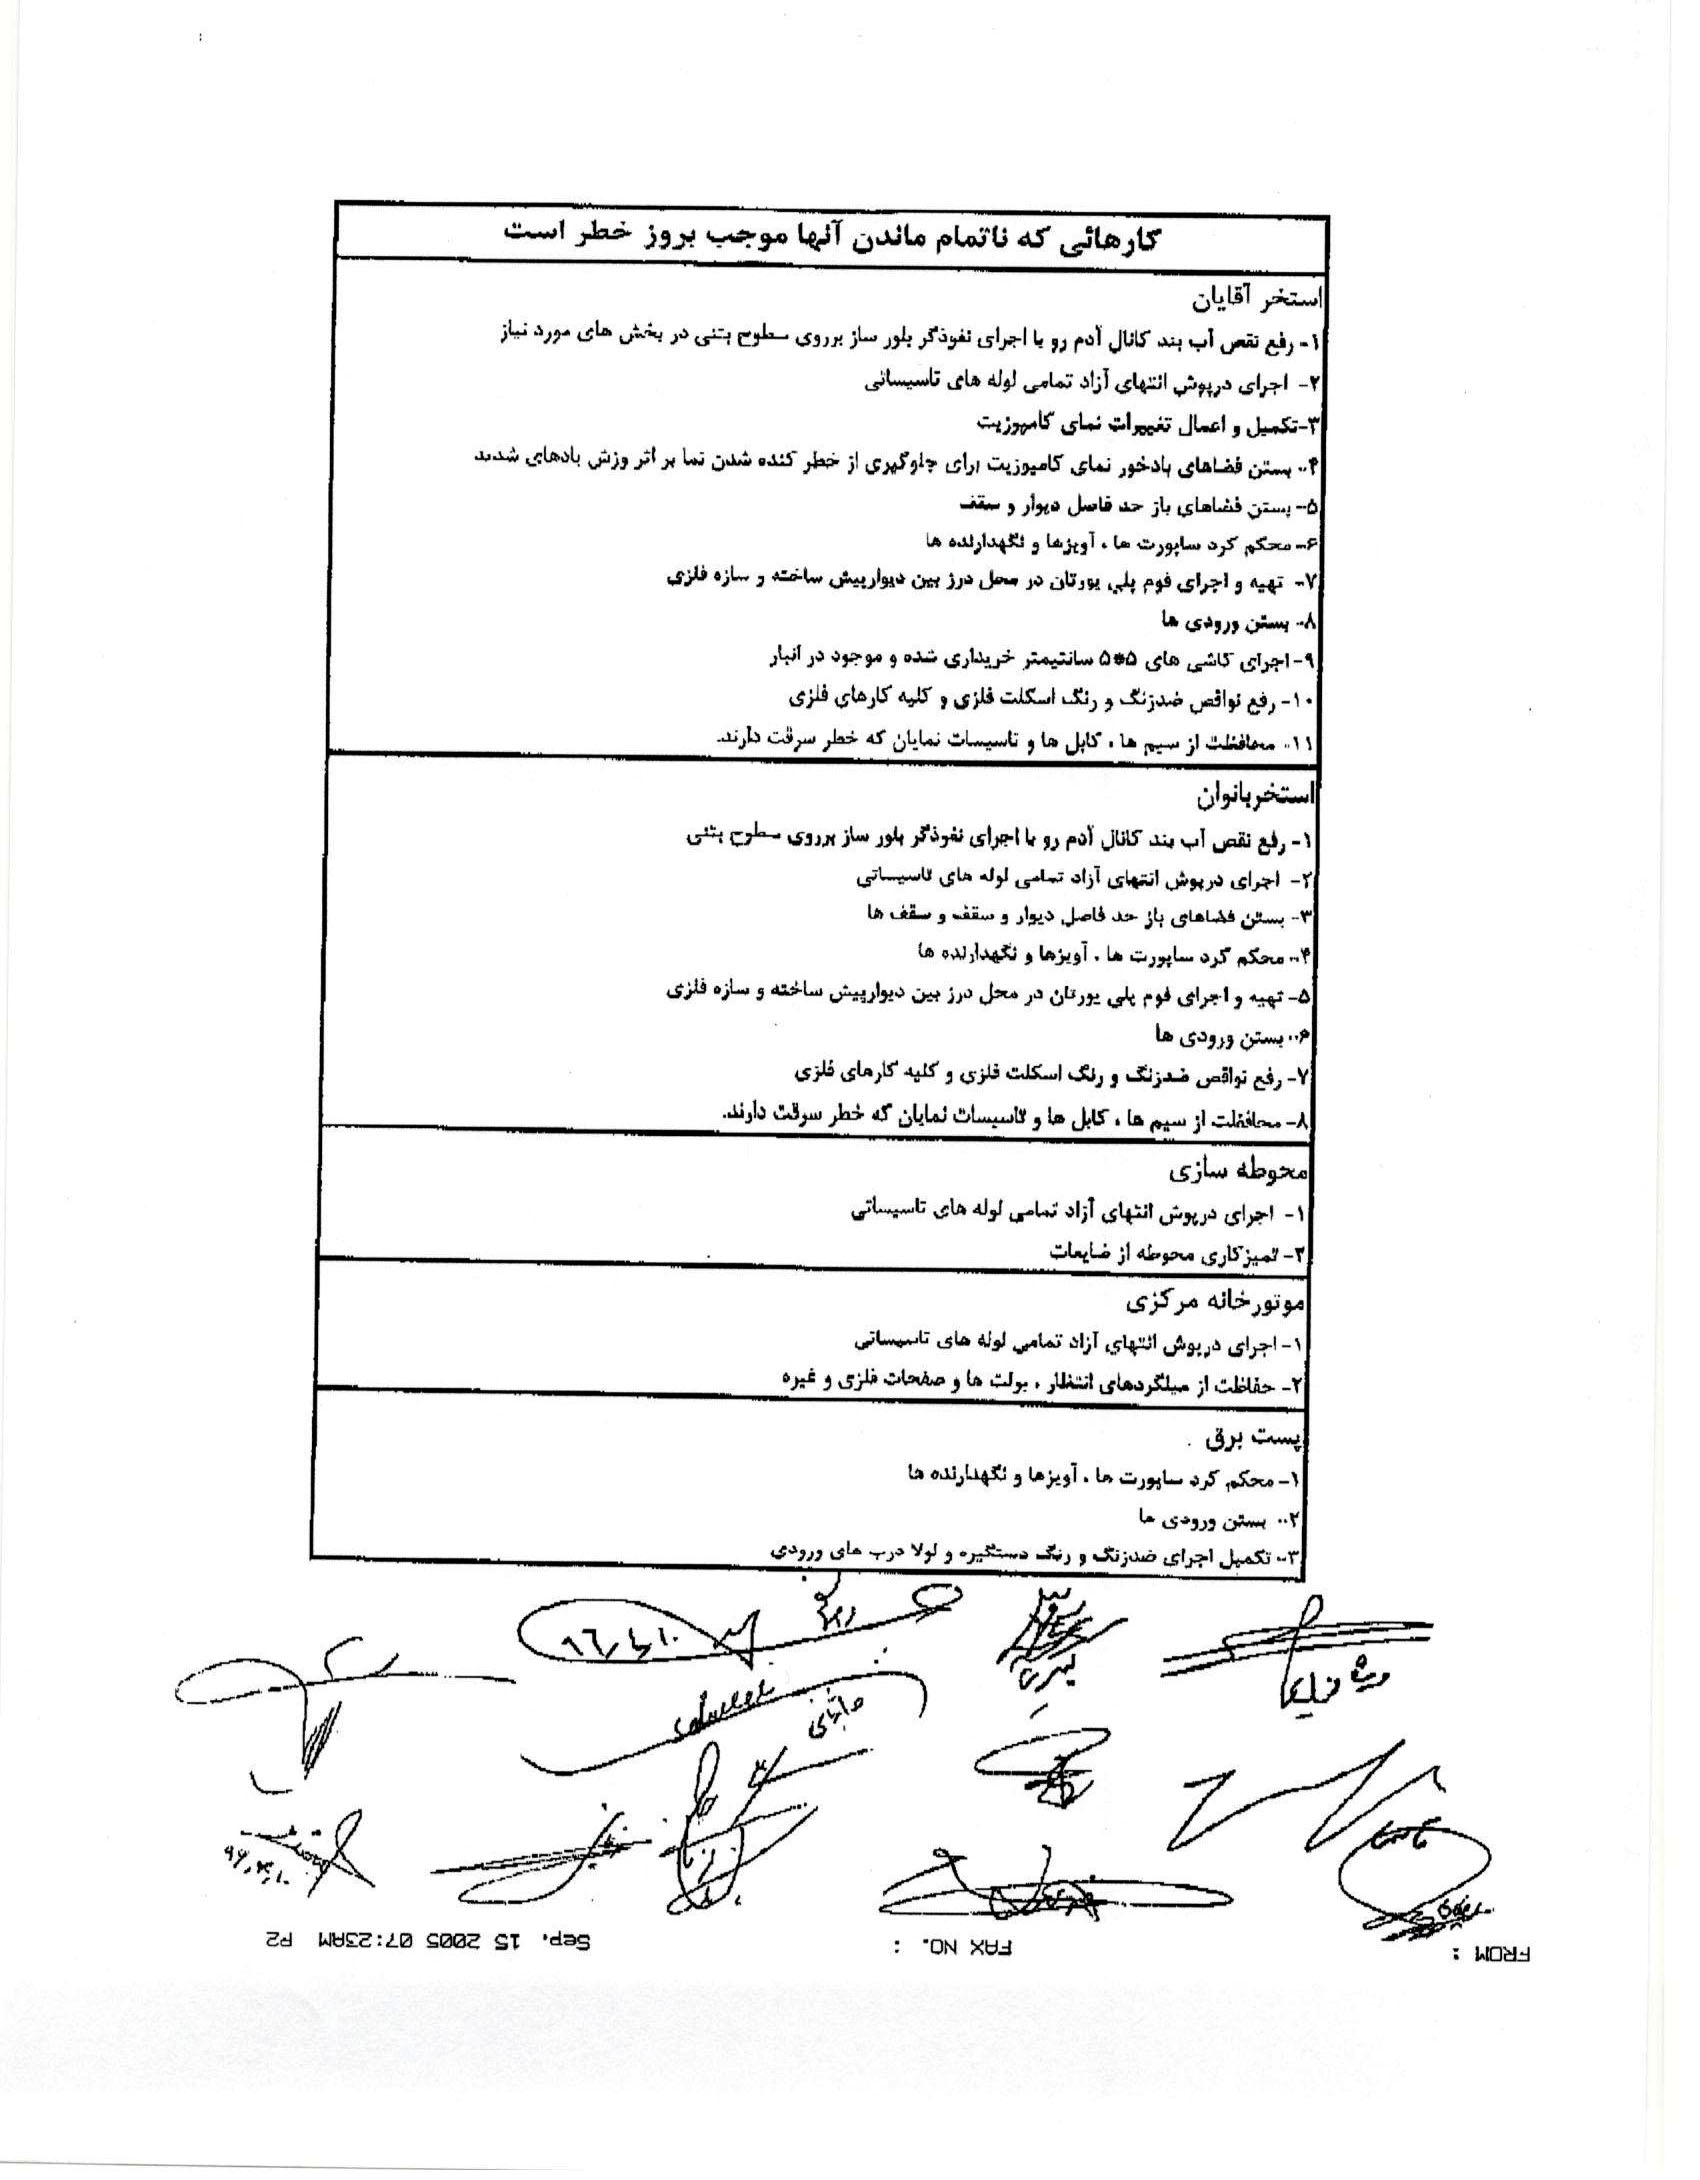 کارهائی که ناتمام ماندن آنها موجب بروز خطر است
استخر آقایان
۱- رفع نقص آب بند کانال آدم رو با اجرای نفوذگر بلور ساز برروی سطوح بتنی در بخش های مورد نیاز
۲- اجرای درپوش انتهای آزاد تمامی لوله های تاسیساتی
۳-تکمیل و اعمال تغییرات نمای کامپوزیت
۴- بستن فضاهای بادخور نمای کامپوزیت برای جلوگیری از خطر کنده شدن نما بر اثر وزش بادهای شدید
۵- بستن فضاهای باز حد فاصل دیوار و سقف
۶- محکم کرد ساپورت ها ، آویزها و نگهدارنده ها
۷- تهیه و اجرای فوم پلی یورتان در محل درز بین دیوارپیش ساخته و سازه فلزی
۸- بستن ورودی ها
۹- اجرای کاشی های ۵*۵ سانتیمتر خریداری شده و موجود در انبار
۱۰- رفع نواقص ضدزنگ و رنگ اسکلت فلزی و کلیه کارهای فلزی
۱۱- محافظت از سیم ها ، کابل ها و تاسیسات نمایان که خطر سرقت دارند.
استخربانوان
۱- رفع نقص آب بند کانال آدم رو با اجرای نفوذگر بلور ساز برروی سطوح بتنی
۲- اجرای درپوش انتهای آزاد تمامی لوله های تاسیساتی
۳- بستن فضاهای باز حد فاصل دیوار و سقف و سقف ها
۴- محکم کرد ساپورت ها ، آویزها و نگهدارنده ها
۵- تهیه و اجرای فوم پلی یورتان در محل درز بین دیوارپیش ساخته و سازه فلزی
۶- بستن ورودی ها
۷- رفع نواقص ضدزنگ و رنگ اسکلت فلزی و کلیه کارهای فلزی
۸- محافظت از سیم ها ، کابل ها و تاسیسات نمایان که خطر سرقت دارند.
محوطه سازی
۱- اجرای درپوش انتهای آزاد تمامی لوله های تاسیساتی
۲- تمیزکاری محوطه از ضایعات
موتورخانه مرکزی
۱- اجرای درپوش انتهای آزاد تمامی لوله های تاسیساتی
۲- حفاظت از میلگردهای انتظار ، بولت ها و صفحات فلزی و غیره
پست برق
۱- محکم کرد ساپورت ها ، آویزها و نگهدارنده ها
۲- بستن ورودی ها
۳- تکمیل اجرای ضدزنگ و رنگ دستگیره و لولا درب های ورودی
FROM : FAX NO. : Sep. 15 2005 07:23AM P2